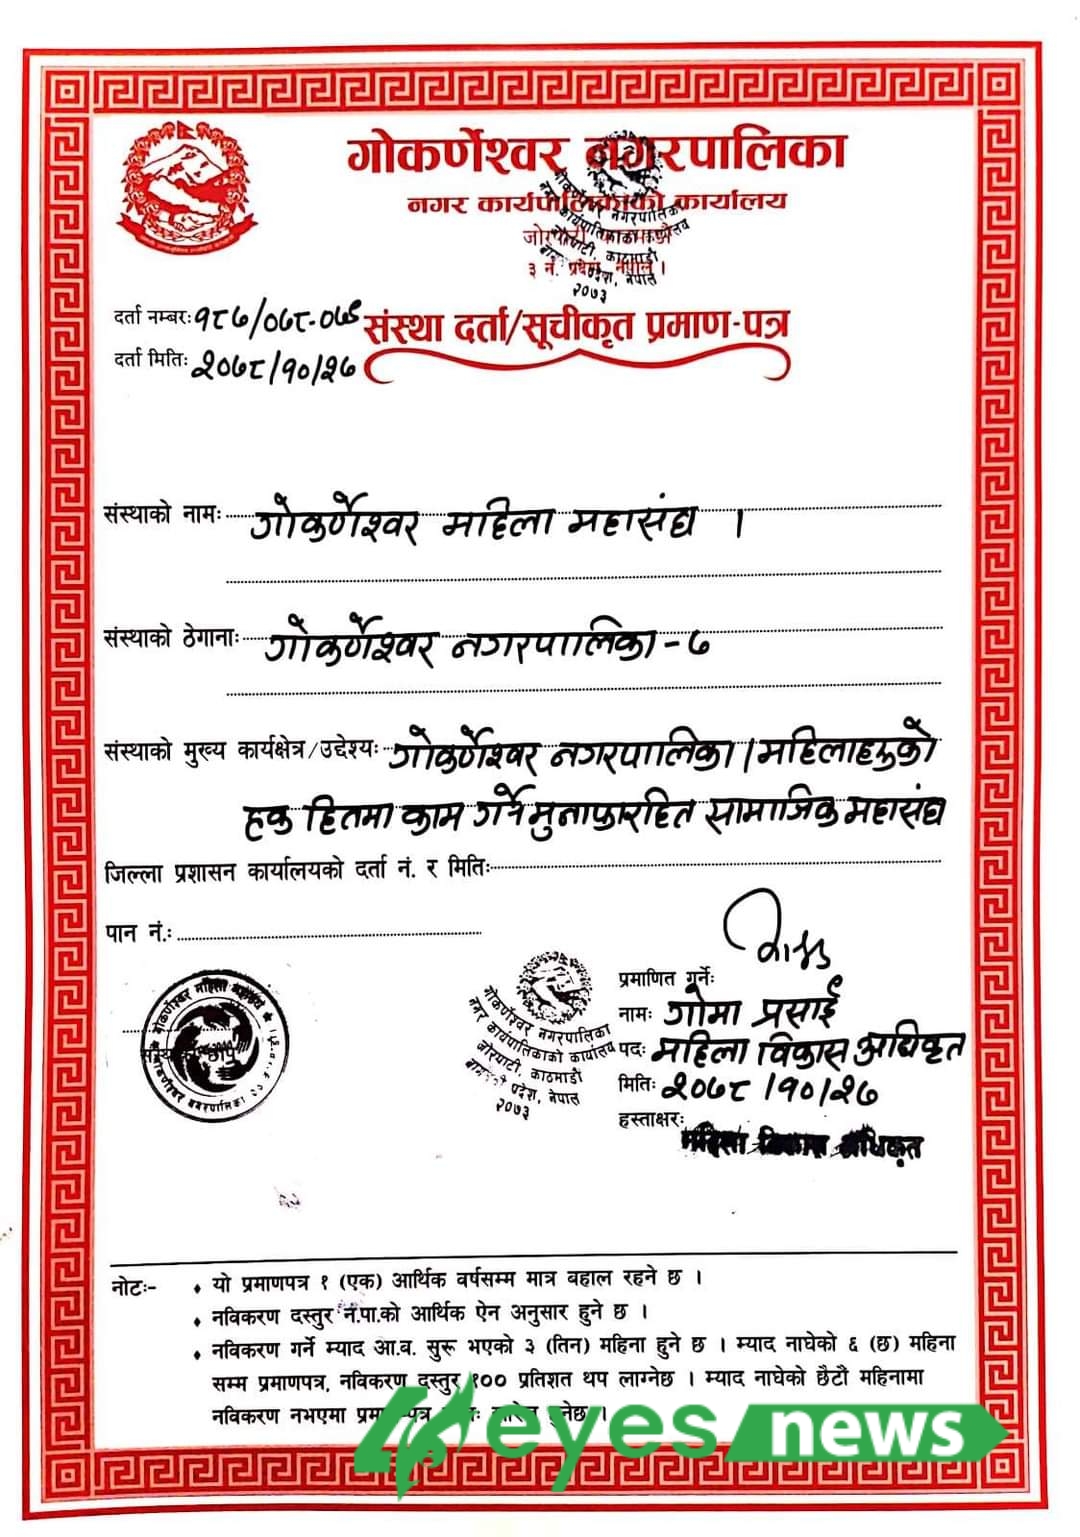 गोकर्णेश्वर नगरपालिका
नगर कार्यपालिकाको कार्यालय
३ नं. प्रदेश, नेपाल ।
गोकर्णेश्वर नगरपालिका
नगर कार्यपालिकाको कार्यालय
जोरपाटी, काठमाडौं
प्रदेश, नेपाल
२०७३
दर्ता नम्बर: १८७/०७८-०७९
संस्था दर्ता/सूचीकृत प्रमाण-पत्र
दर्ता मिति: २०७८/१०/२७
संस्थाको नामः गोकर्णेश्वर महिला महासंघ ।
संस्थाको ठेगानाः गोकर्णेश्वर नगरपालिका - ७
संस्थाको मुख्य कार्यक्षेत्र/उद्देश्यः गोकर्णेश्वर नगरपालिका । महिलाहरुको
हक हितमा काम गर्ने मुनाफारहित सामाजिक महासंघ
जिल्ला प्रशासन कार्यालयको दर्ता नं. र मितिः
पान नं.:
गोकर्णेश्वर महिला महासंघ
गोकर्णेश्वर नगरपालिका
गोकर्णेश्वर नगरपालिका
नगर कार्यपालिकाको कार्यालय
जोरपाटी, काठमाडौं
प्रदेश, नेपाल
२०७३
प्रमाणित गर्नेः
नामः गोमा प्रसाईं
पदः महिला विकास अधिकृत
मितिः २०७८/१०/२७
हस्ताक्षरः
महिला विकास अधिकृत
नोटः-
♦ यो प्रमाणपत्र १ (एक) आर्थिक वर्षसम्म मात्र बहाल रहने छ ।
♦ नविकरण दस्तुर न.पा.को आर्थिक ऐन अनुसार हुने छ ।
♦ नविकरण गर्ने म्याद आ.व. सुरू भएको ३ (तिन) महिना हुने छ । म्याद नाघेको ६ (छ) महिना
सम्म प्रमाणपत्र, नविकरण दस्तुर १०० प्रतिशत थप लाग्नेछ । म्याद नाघेको छैटौं महिनामा
नविकरण नभएमा हुनेछ ।
eyes news